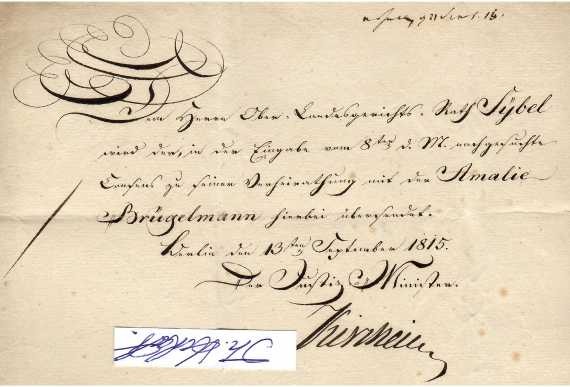 Dem Herrn Ober-Landesgerichts-Rath Sybel
wird der, in der Eingabe vom 8ten d. M. nachgesuchte
Consens zu seiner Verheirathung mit der Amalie
Brügelmann hierbei übersendet.
Berlin den 13ten September 1815.
Der Justiz Minister.
Kircheisen